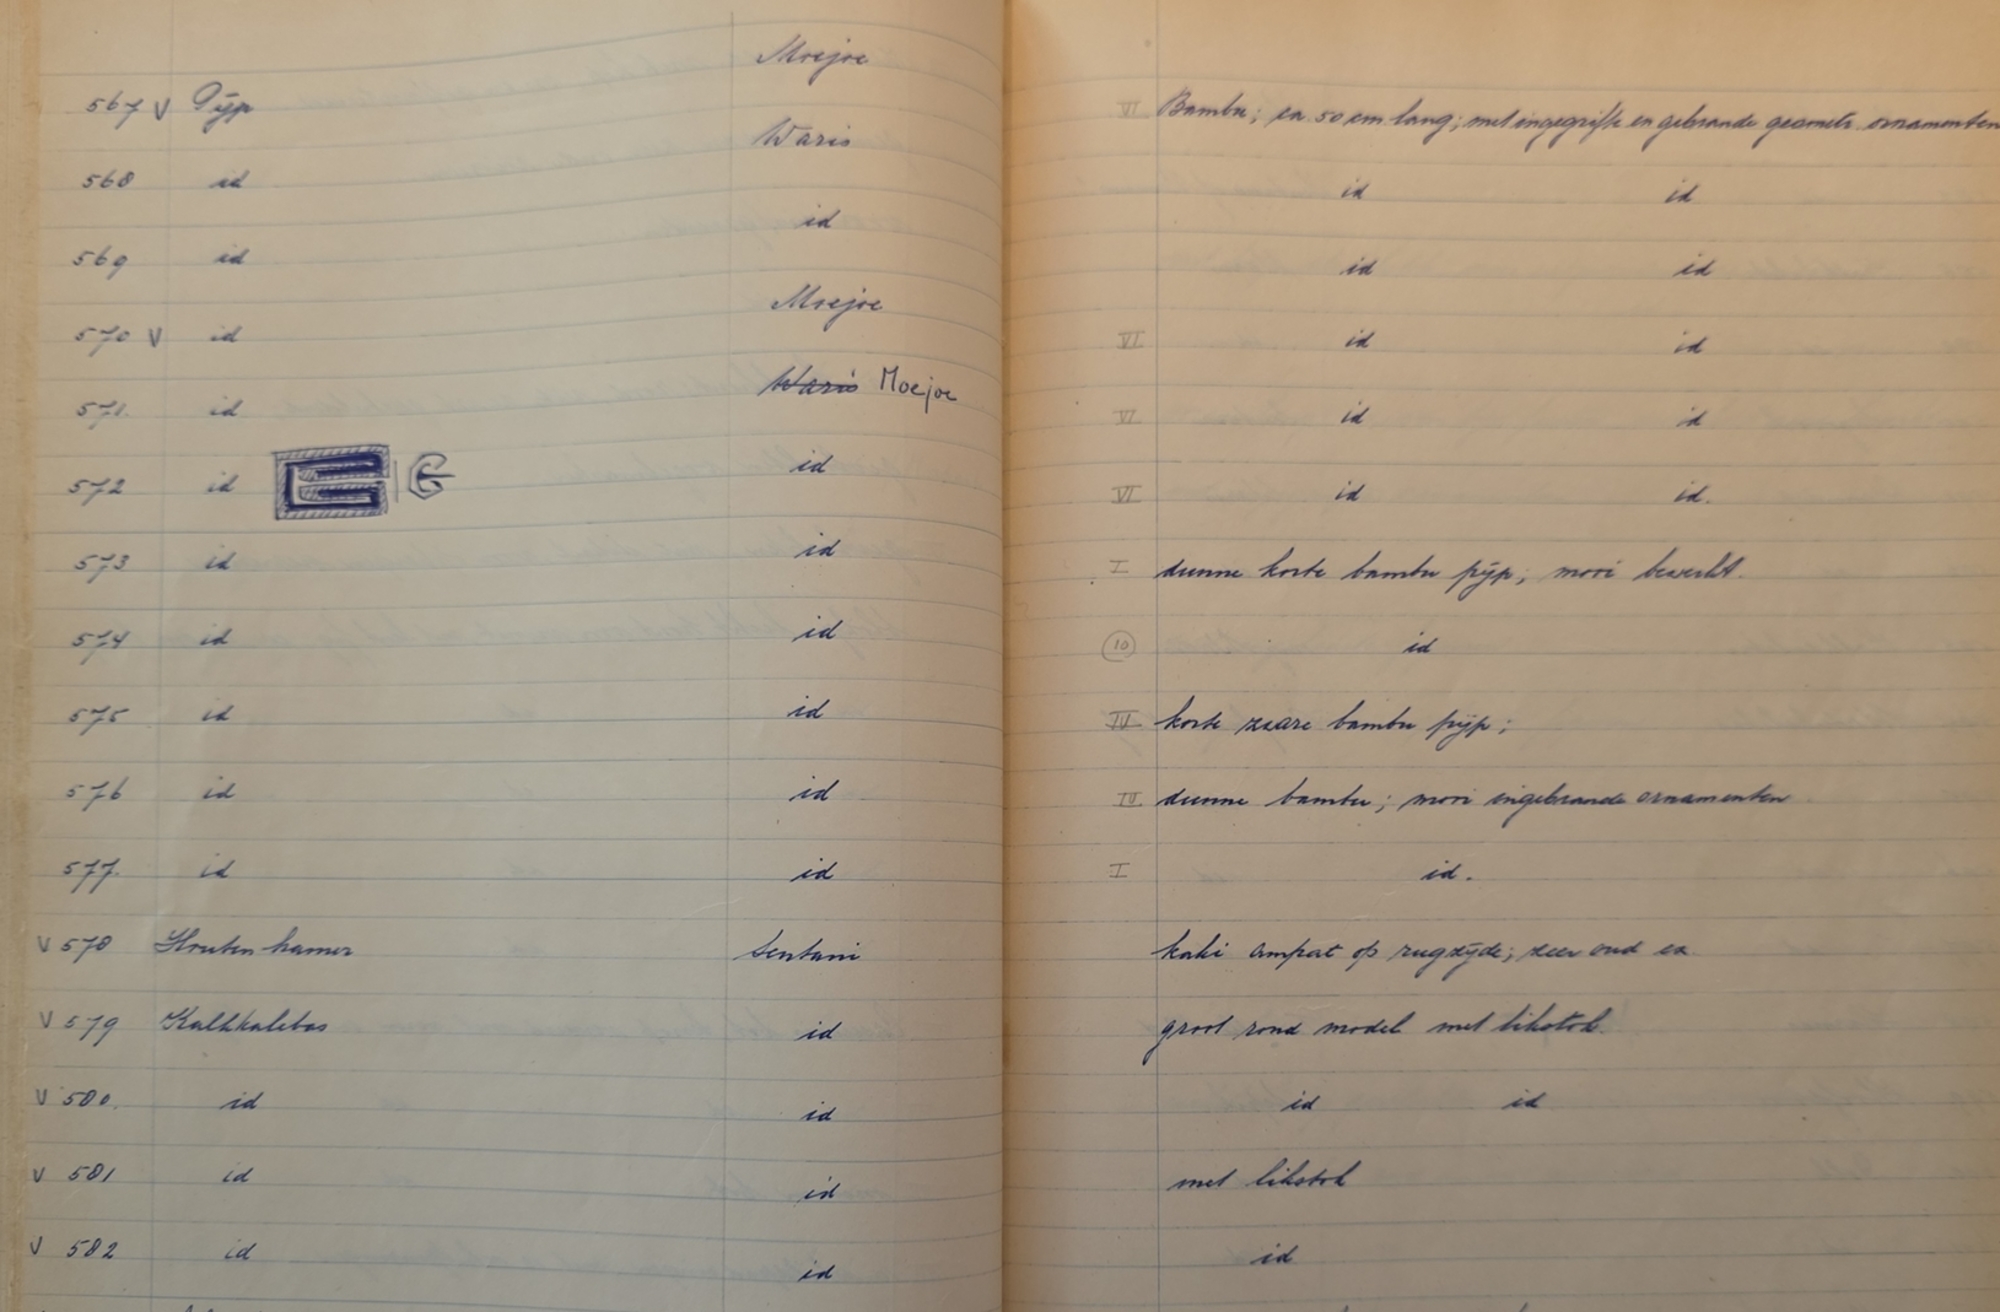 567 V Pijp Moejoe VI Bambu; ca 50 cm lang; met ingegrifte en gebrande geometr. ornamenten
568 id Waris id id
569 id id id id
570 V id Moejoe VI id id
571. id Waris Moejoe VI id id
572 id id VI id id.
573 id id I dunne korte bambu pijp; mooi bewerkt.
574 id id 10 id
575 id id IV korte zware bambu pijp;
576 id id dunne bambu; mooi ingebrande ornamenten
577. id id I id.
V 578 Houten hamer Sentani kaki ampat op rugzijde; zeer oud ex
V 579 Kalkkalebas id groot rond model met likstok.
V 580. id id id id
V 581 id id met likstok
V 582 id id id